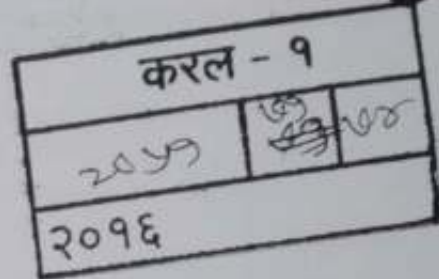 करल - १
२०५१ ७४
२०१६